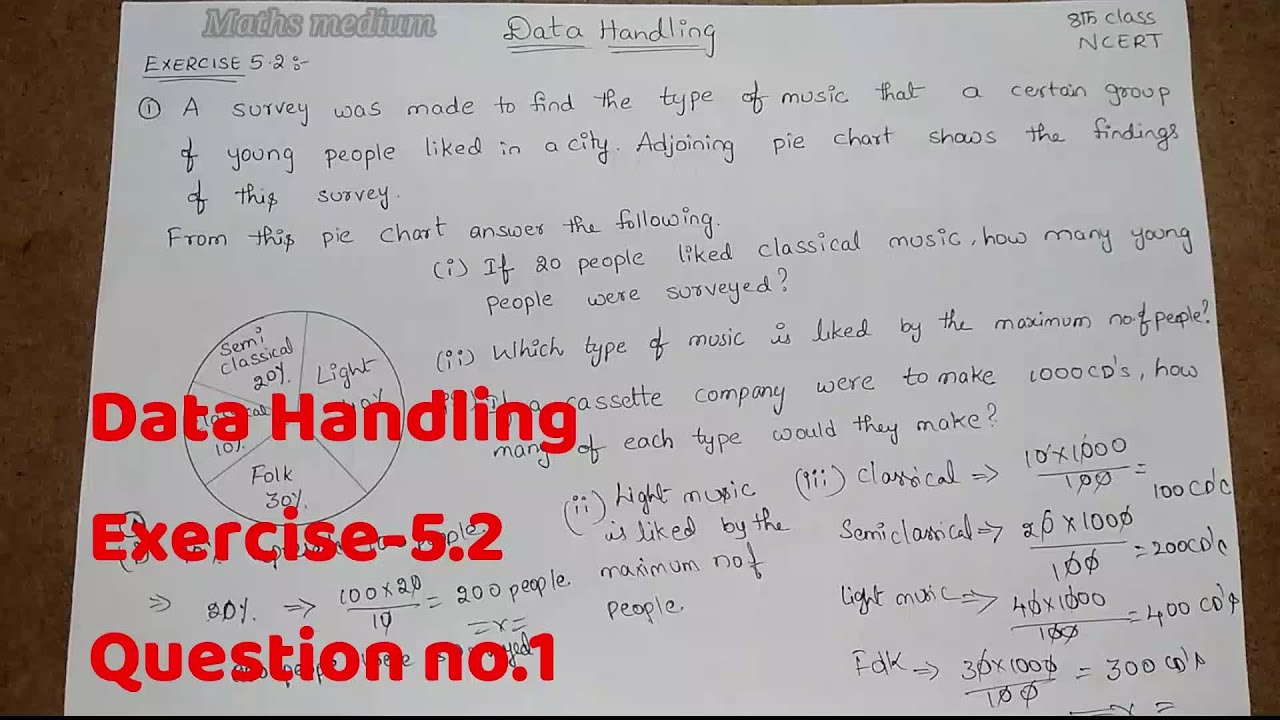 Maths medium
Data Handling
8th class
NCERT
EXERCISE 5.2 :-
① A survey was made to find the type of music that a certain group
of young people liked in a city. Adjoining pie chart shows the findings
of this survey.
From this pie chart answer the following.
(i) If 20 people liked classical music, how many young
people were surveyed?
(ii) Which type of music is liked by the maximum no. of people?
If a cassette company were to make 1000 CD's, how
many of each type would they make?
Semi
classical
20%
Light
Classical
10%
Folk
30%
Data Handling
Exercise-5.2
Question no.1
people.
⇒ 20% ⇒ 100 x 20 / 10 = 200 people.
people were surveyed
(ii) Light music
is liked by the
maximum no of
people.
(iii) Classical ⇒ 10 x 1000 / 100 = 100 CD's
Semiclassical ⇒ 20 x 1000 / 100 = 200 CD's
Light music ⇒ 40 x 1000 / 100 = 400 CD's
Folk ⇒ 30 x 1000 / 100 = 300 CD's